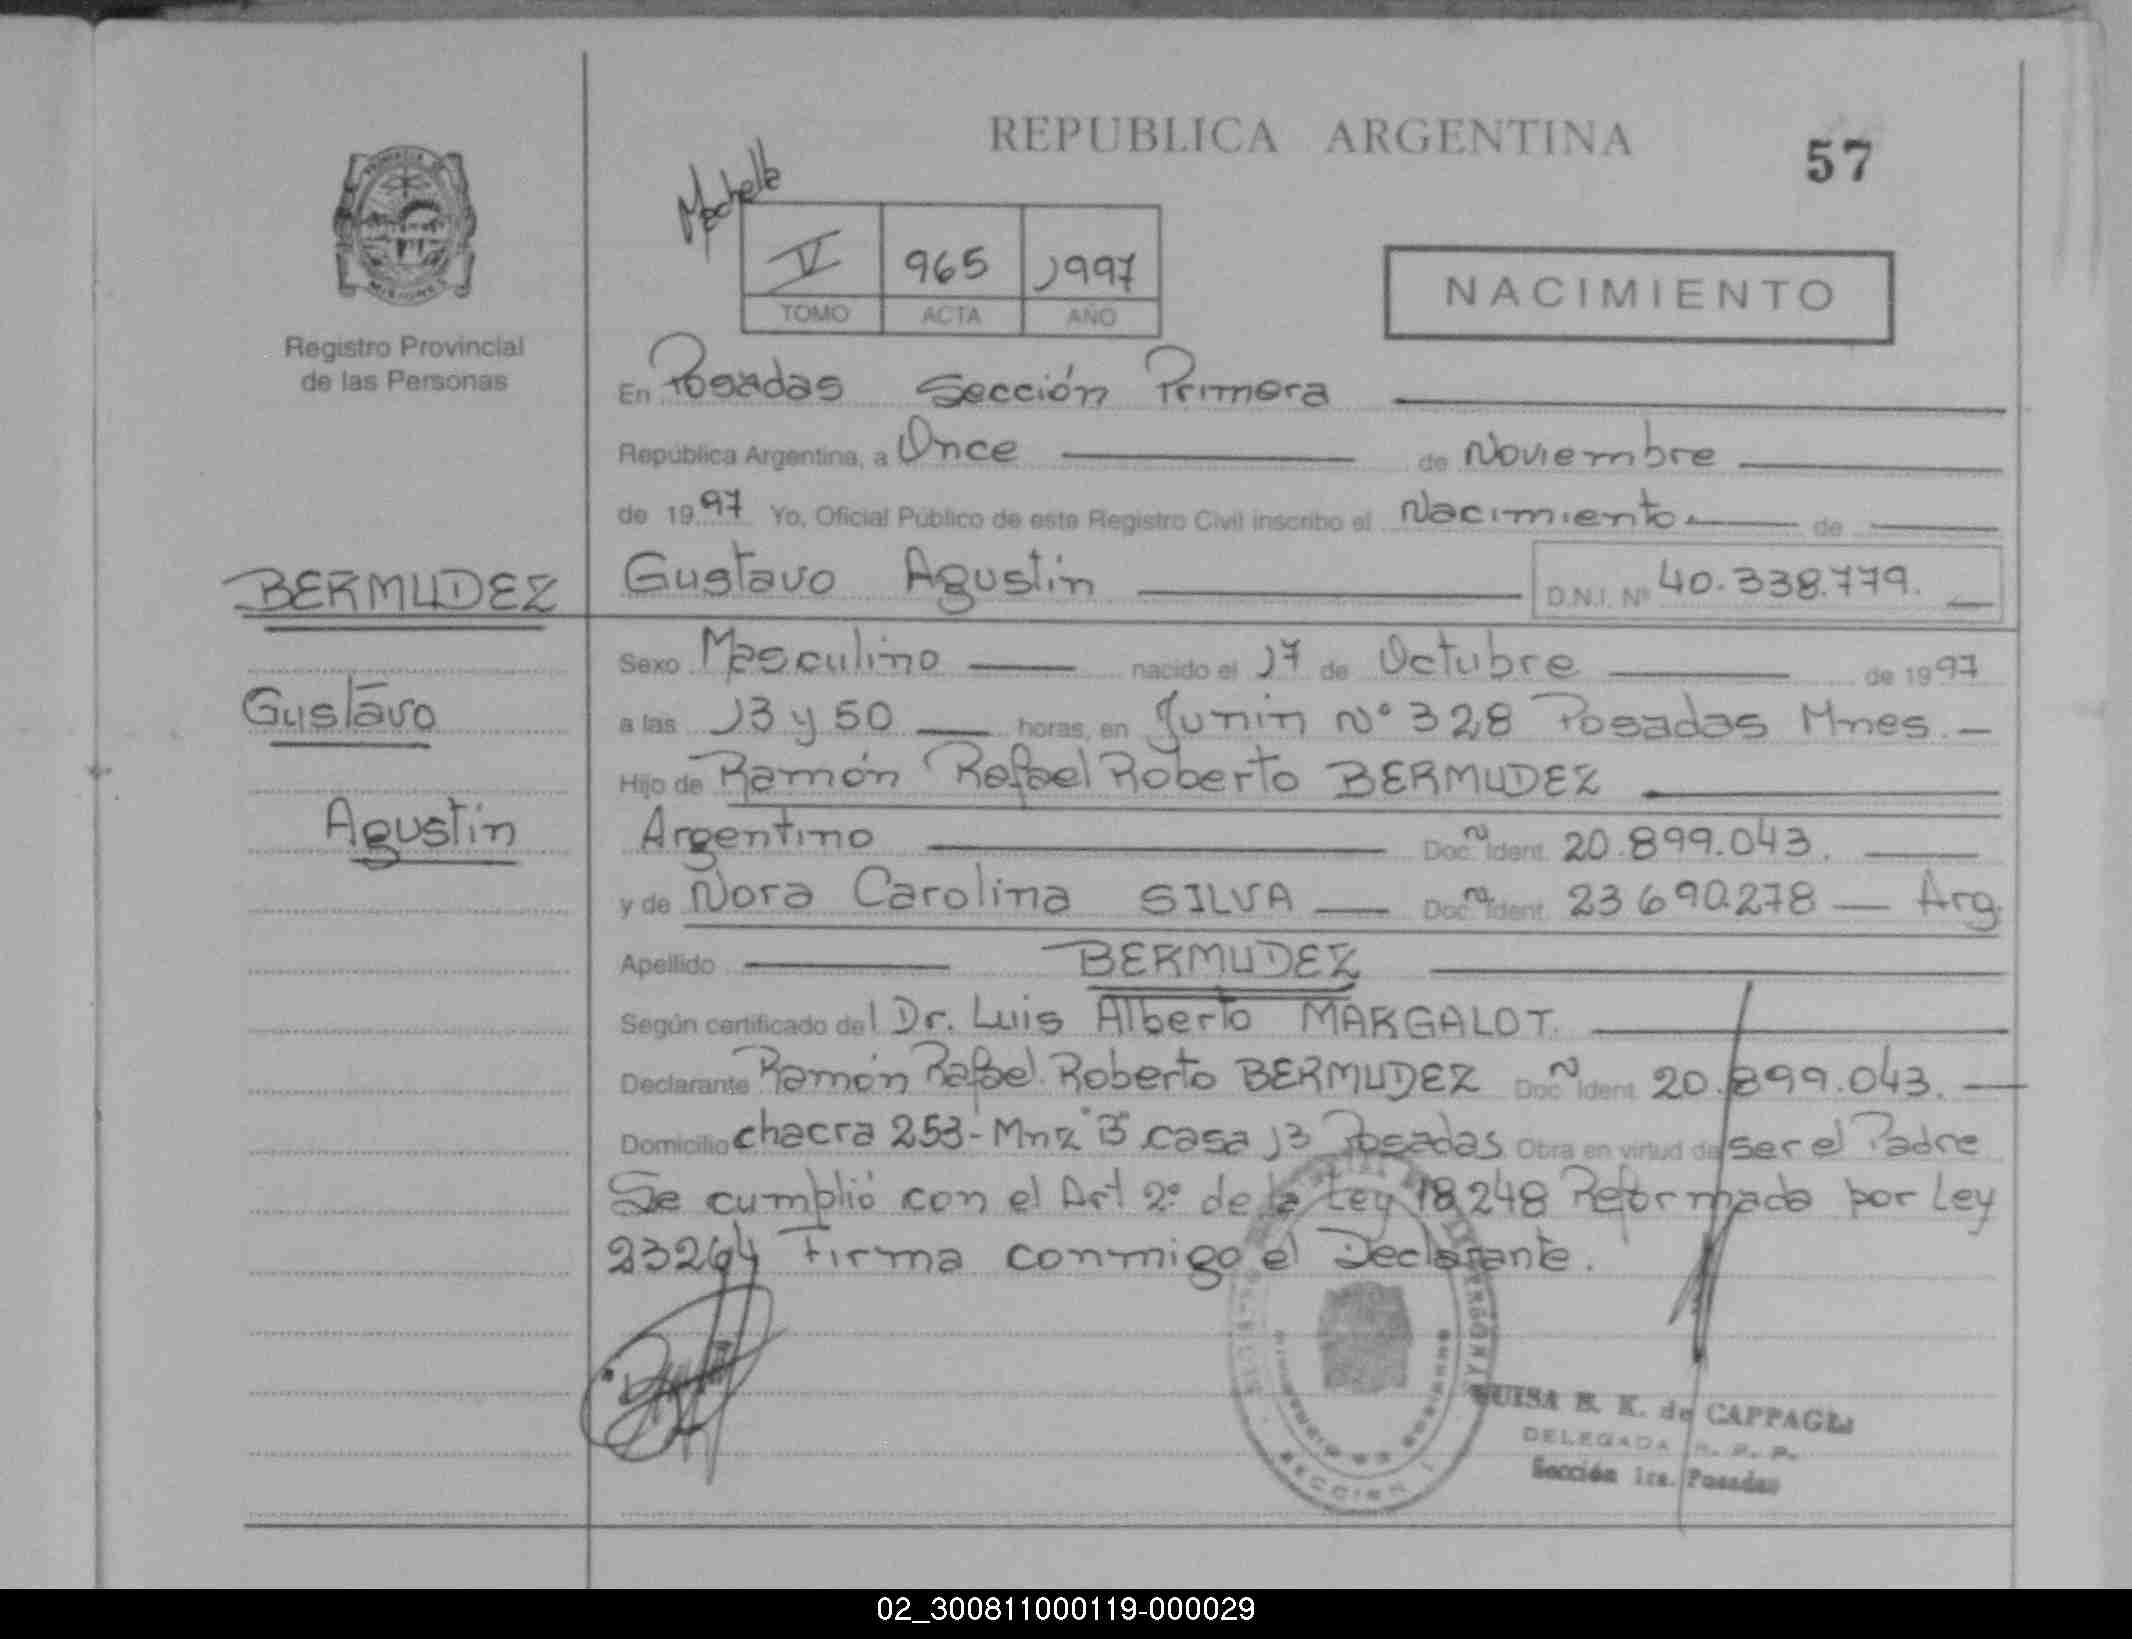 REPUBLICA ARGENTINA
57
V 965 1997
TOMO ACTA AÑO
NACIMIENTO
MISIONES
Registro Provincial
de las Personas
En Posadas Sección Primera
República Argentina, a Once de Noviembre
de 1997 Yo, Oficial Público de este Registro Civil inscribo el Nacimiento de
BERMUDEZ
Gustavo Agustín D.N.I. Nº 40.338.779.
Sexo Masculino nacido el 17 de Octubre de 1997
Gustavo
a las 13 y 50 horas, en Junin Nº 328 Posadas Mnes.
Hijo de Ramón Rafael Roberto BERMUDEZ
Agustín
Argentino Doc. Ident. 20.899.043.
y de Nora Carolina SILVA Doc. Ident. 23690.278 Arg.
Apellido BERMUDEZ
Según certificado del Dr. Luis Alberto MARGALOT.
Declarante Ramón Rafael Roberto BERMUDEZ Doc. Ident. 20.899.043.
Domicilio chacra 253-Mnz "B" casa 13 Posadas Obra en virtud de ser el Padre
Se cumplió con el Art 2º de la Ley 18248 Reformada por Ley
23264 Firma conmigo el Declarante.
SECCION
LUISA B. K. de CAPPAGLI
DELEGADA R. P. P.
Sección 1ra. Posadas
02_300811000119-000029